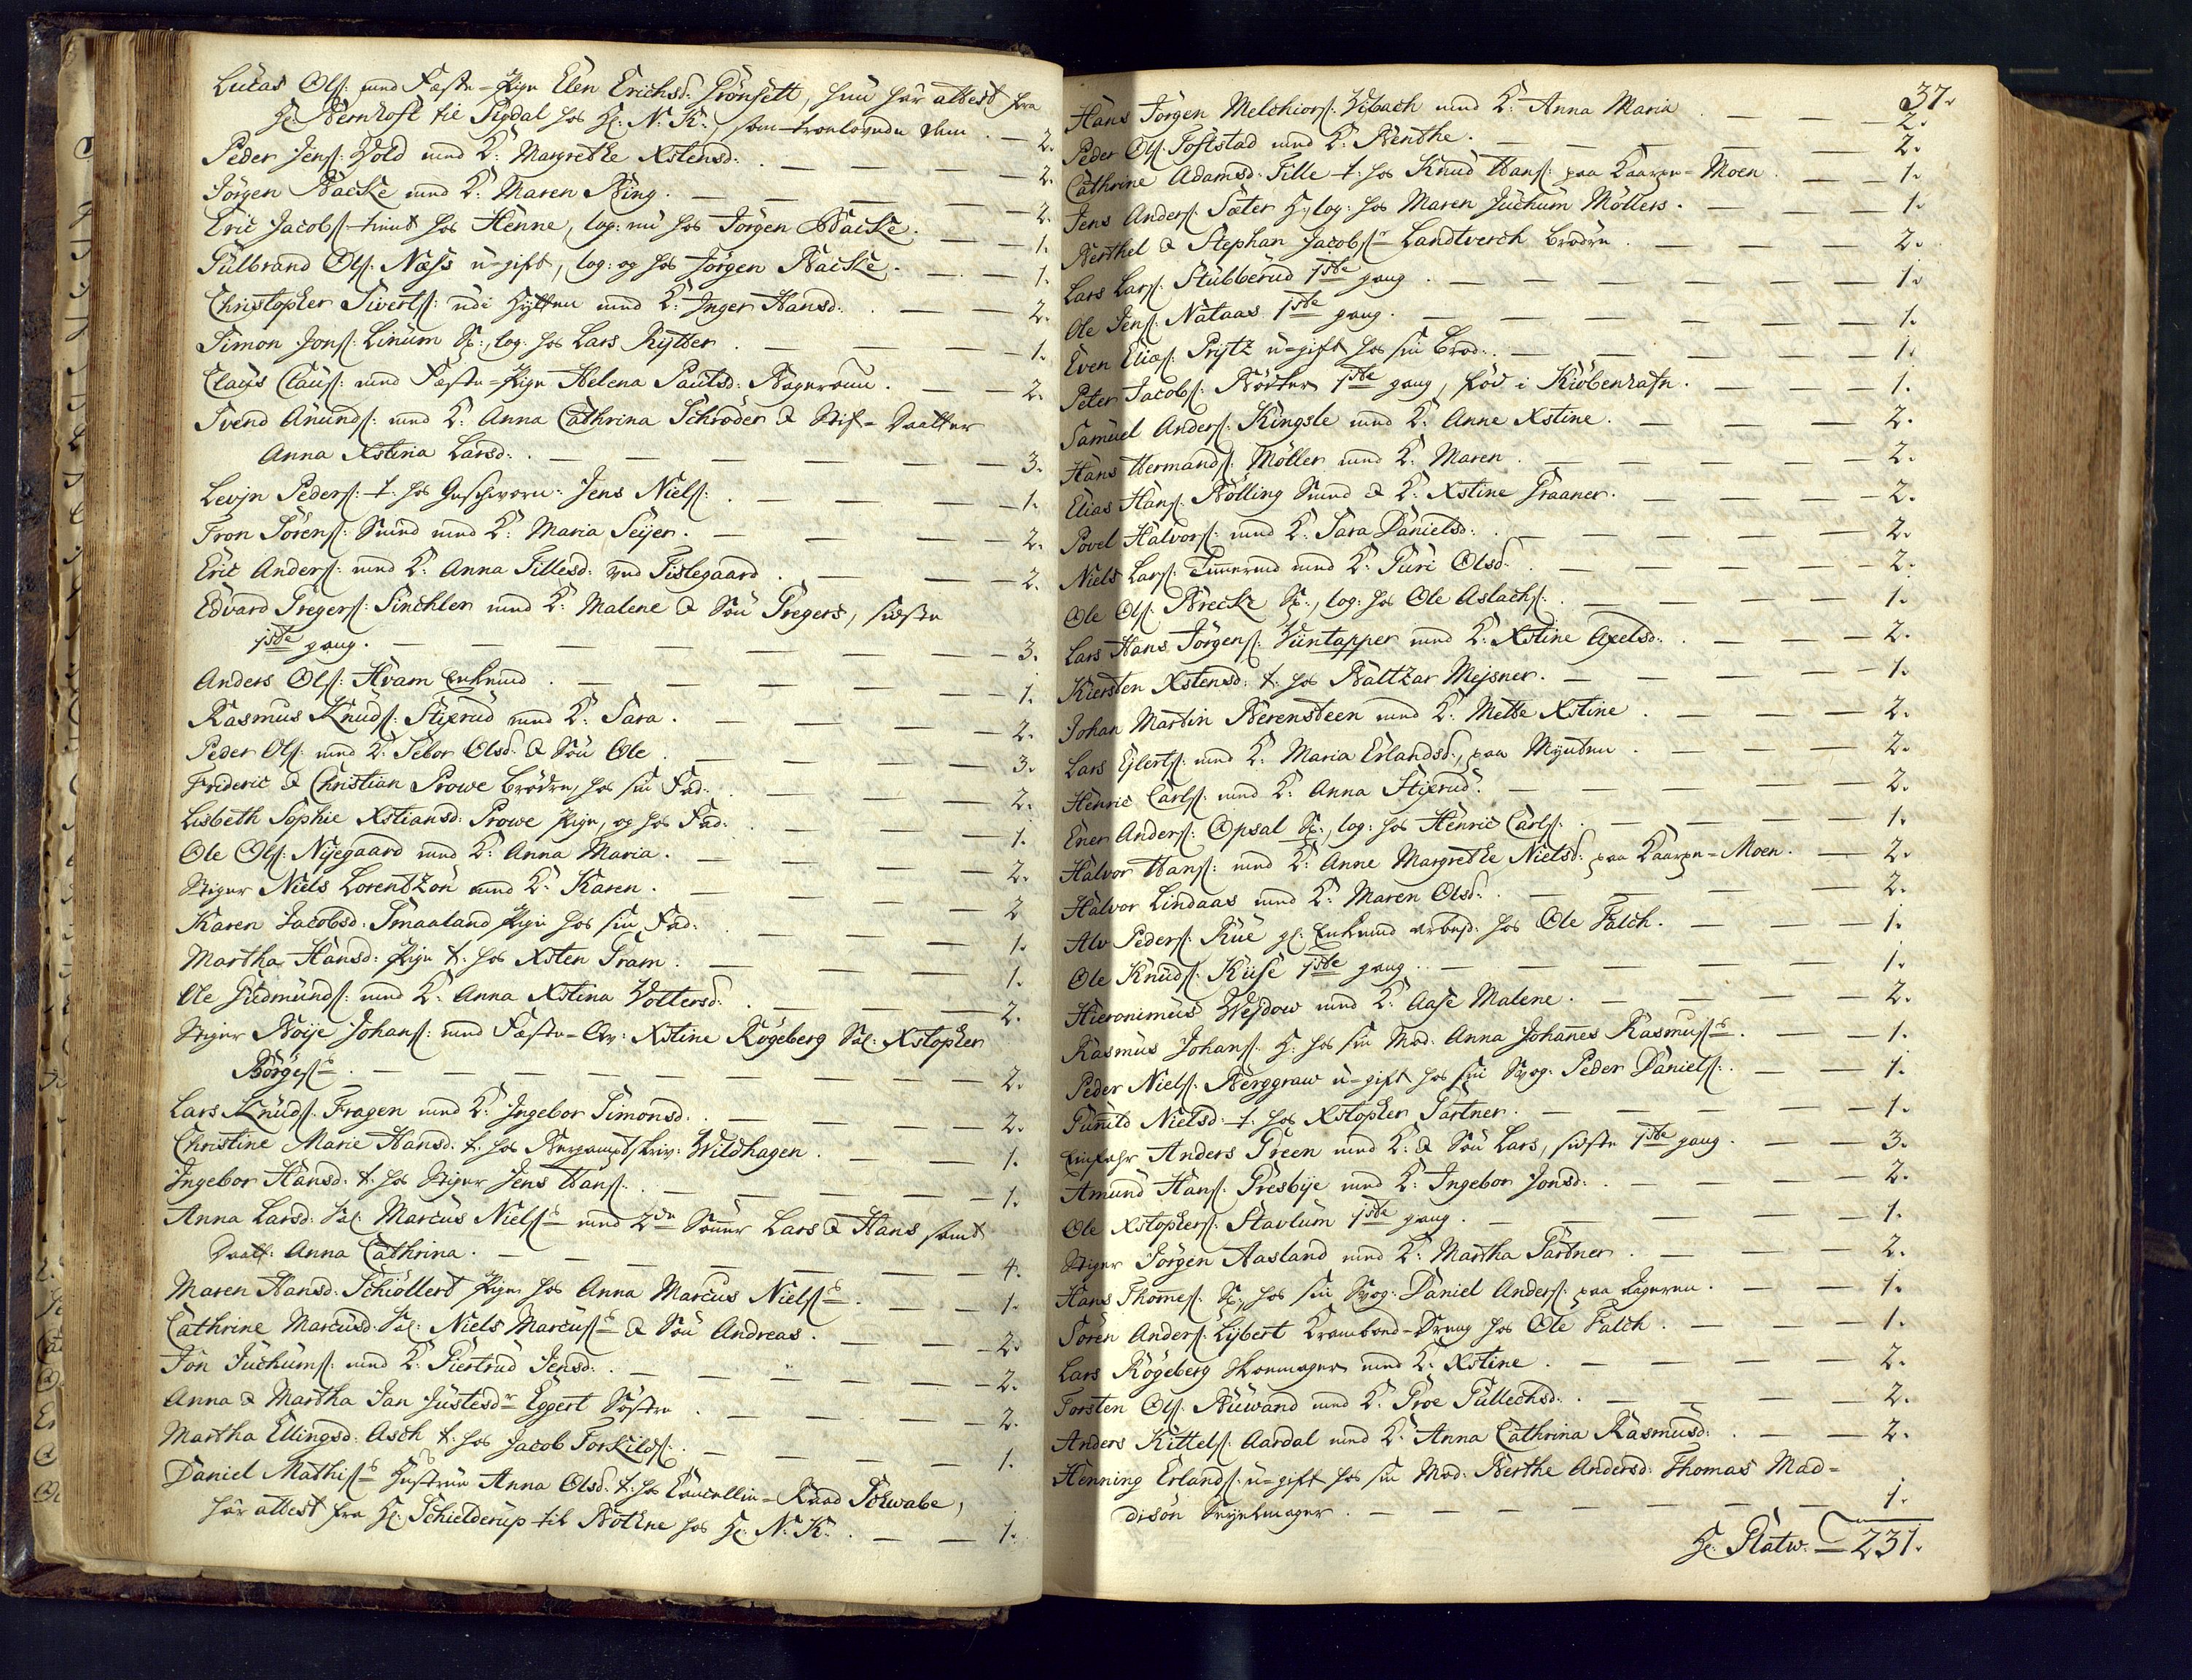 Lucas Ols: med Fæste-Pige Elen Erichsd: Grönsett, hun har attest fra
Hr. Bernhoft til Sigdal hos Hr: N: K:, som troelovede dem . — 2.
Peder Jens: Vold med K: Margrethe Xstensd: . — — — 2.
Jörgen Backe med K: Maren Ring . — — — — 2.
Eric Jacobs: tient hos Henne, log: nu hos Jörgen Backe . — 1.
Gulbrand Ols: Næss u-gift, log: og hos Jörgen Backe . — 1.
Christopher Siverts: udi Hytten med K: Inger Hansd: . — — 2.
Simon Jons: Linum S:, log: hos Lars Rytter . — — — 1.
Clays Claus: med Fæste-Pige Helena Paulsd: . — — 2.
Svend Anunds: med K: Anna Cathrina Schröder & Stif-Daatter
Anna Xstina Larsd: . — — — — — — — 3.
Levjn Peders: t: hos Geschworn: Jens Niels: . — — — 1.
Tron Sörens: Smed med K: Maria Seyer . — — — — 2.
Eric Anders: med K: Anna Tillesd: ved Tislegaard . — — — 2.
Edvard Gregers: Sinchler med K: Malene & Sön Gregers, sidste
1ste gang . — — — — — — — — — 3.
Anders Ols: Hvam Enkemd . — — — — — — 1.
Rasmus Knuds: Stixrud med K: Sara . — — — — 2.
Peder Ols: med K: Sebor Olsd: & Sön Ole . — — — — 3.
Frideric & Christian Prowe brödre, hos sin Fad: . — — — 2.
Lisbeth Sophie Xstiansd: Prowe Pige, og hos Fad: . — — — 1.
Ole Ols: Nyegaard med K: Anna Maria . — — — — 2.
Stiger Niels Lorentzön med K: Karen . — — — — 2
Karen Jacobsd: Smaaland Pige hos sin Fad: . — — — 1.
Martha Hansd: Pige t: hos Xsten Gram . — — — — 1.
Ole Gudmunds: med K: Anna Xstina Woltersd: . — — — 2.
Stiger Boije Johans: med Fæste-Qv: Xstine Rögeberg Sal: Xstopher
Börges: . — — — — — — — — — 2.
Lars Knuds: Fragen med K: Ingebor Simonsd: . — — — — 2.
Christine Marie Hansd: t: hos Bergamptskriv: Wildhagen . — — — 1.
Ingebor Hansd: t: hos Stiger Jens Hans: . — — — — — 1.
Anna Larsd: Sal: Marcus Niels: med 2de Sönner Lars & Hans samt
Daatt: Anna Cathrina . — — — — — — — 4.
Maren Hansd: Schiöllert Pige hos Anna Marcus Niels: . — — — 1.
Cathrine Marcusd: Sal: Niels Marcus: & Sön Andreas . — — — 2.
Jon Juchums: med K: Giertrud Jensd: . — — — — — 2.
Anna & Martha Jan Justesdr Eggert Söstre . — — — — 2.
Martha Ellingsd: Asch t: hos Jacob Torkilds: . — — — — 1.
Daniel Mathis: Hustrue Anna Olsd: t: hos Cancellie-Raad Schwabe,
har attest fra Hr: Schielderup til Bothne hos Hr: N: K: . — — 1.
37.
Hans Jörgen Melchiors: Vibach med K: Anna Maria . — — — 2.
Peder Ols: Toftstad med K: Benthe . — — — — — 2.
Cathrine Adamsd: Tille t: hos Knud Hans: paa Kaarpe-Moen . — — 1.
Jens Anders: Sæter H:, log: hos Maren Juchum Möllers . — — — 1.
Berthel & Stephan Jacobs: Landtverch brödre . — — — — 2.
Lars Lars: Stubberud 1ste gang . — — — — — 1.
Ole Jens: Nataas 1ste gang . — — — — — — 1.
Even Elias: Prytz u-gift hos sin Brod: . — — — — — 1.
Peter Jacobs: 1ste gang, föd i Kiöbenhafn . — — — 1.
Samuel Anders: Kingsle med K: Anne Xstine . — — — — 2.
Hans Hermands: Möller med K: Maren . — — — — — 2.
Elias Hans: Bölling Smed & K: Xstine Graaner . — — — — 2.
Povel Halvors: med K: Sara Danielsd: . — — — — — 2.
Niels Lars: Timmerud med K: Guri Olsd: . — — — — — 2.
Ole Ols: Brecke S:, log: hos Ole Aslachs: . — — — — 1.
Lars Hans Jörgens: Viintapper med K: Xstine Axelsd: . — — — 2.
Kiersten Xstensd: t: hos Baltzar Mejsner . — — — — — 1.
Johan Martin Berensteen med K: Mette Xstine . — — — — 2.
Lars Ejlerts: med K: Maria Erlandsd:, paa Mynten . — — — 2.
Henric Carls: med K: Anna Stixrud . — — — — — 2.
Ener Anders: Opsal S:, log: hos Henric Carls: . — — — — 1.
Halvor Hans: med K: Anne Margrethe Nielsd: paa Kaarpe-Moen . — 2.
Halvor Lindaas med K: Maren Olsd: . — — — — — 2.
Alv Peders: Rue gl: Enkemd arbejd: hos Ole Falch . — — — 1.
Ole Knuds: Kuse 1ste gang . — — — — — — 1.
Hieronimus Wejdow med K: Aase Malene . — — — — 2.
Rasmus Johans: H: hos sin Mod: Anna Johannes Rasmus: . — — 1.
Peder Niels: Berggraw u-gift hos sin Svog: Peder Daniels: . — — 1.
Gunild Nielsd: t: hos Xstopher Gartner . — — — — — 1.
Einfahr Anders Green med K: & Sön Lars, sidste 1ste gang . — — 3.
Amund Hans: Presbye med K: Ingebor Jonsd: . — — — — 2.
Ole Xstophers: Stavlum 1ste gang . — — — — — 1.
Stiger Jörgen Aasland med K: Martha Gartner . — — — — 2.
Hans Thommes: S:, hos sin Svog: Daniel Anders: paa Ageren . — — 1.
Sören Anders: Lybert Krambod-Dreng hos Ole Falch . — — — 1.
Lars Rögeberg Skoemager med K: Xstine . — — — — 2.
Torsten Ols: Buwand med K: Groe Gullechsd: . — — — — 2.
Anders Kittels: Aardal med K: Anna Cathrina Rasmusd: . — — — 2.
Henning Erlands: u-gift hos sin Mod: Berthe Andersd: Thomas Mad-
disön . — — — — — — — 1.
Hr: Platw: — 231.